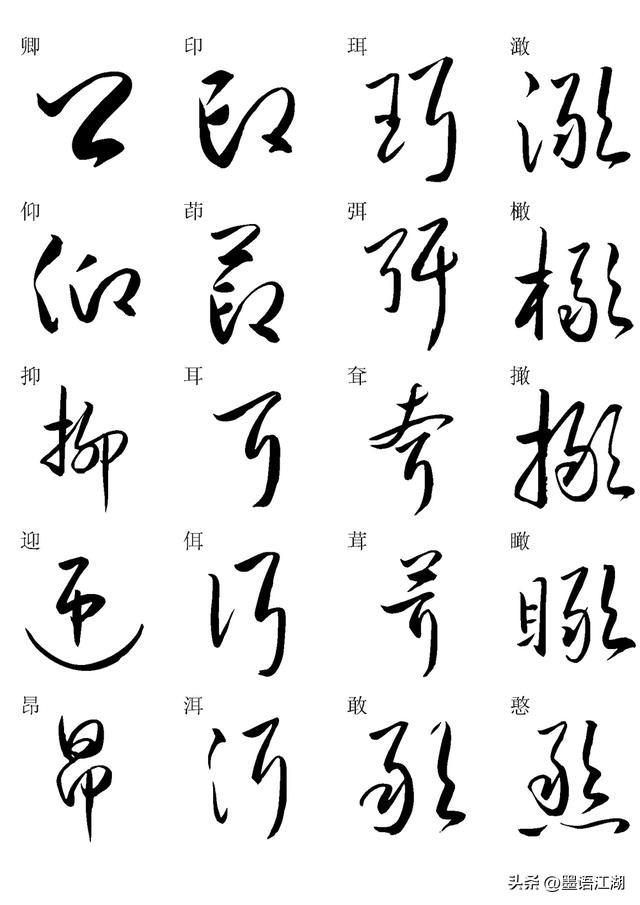 卿 印 珥 澉
仰 茚 弭 橄
抑 耳 耷 撖
迎 佴 茸 瞰
昂 洱 敢 憨
头条 @墨语江湖